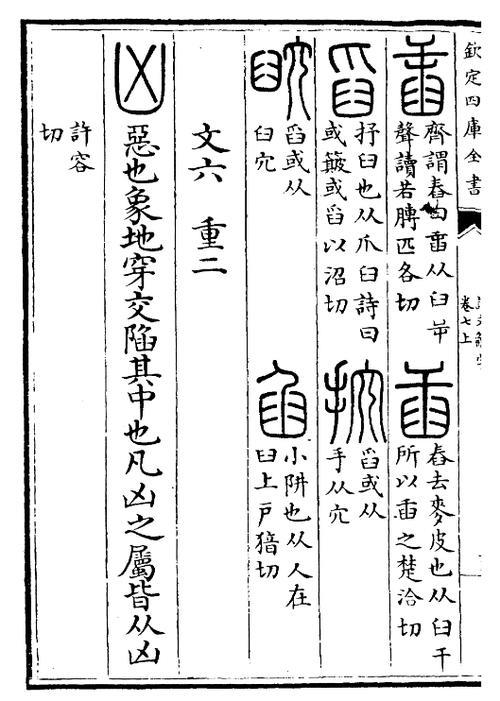 欽定四庫全書
卷七上
𦥻
齊謂舂曰𦥻从臼屰
聲讀若膊匹各切
臿
舂去麥皮也从臼干
所以臿之楚洽切
舀
抒臼也从爪臼詩曰
或簸或舀以沼切
抭
舀或从
手从穴
舀或从
臼穴
臽
小阱也从人在
臼上戶切
文六　重二
凶
惡也象地穿交陷其中也凡凶之屬皆从凶
許容
切